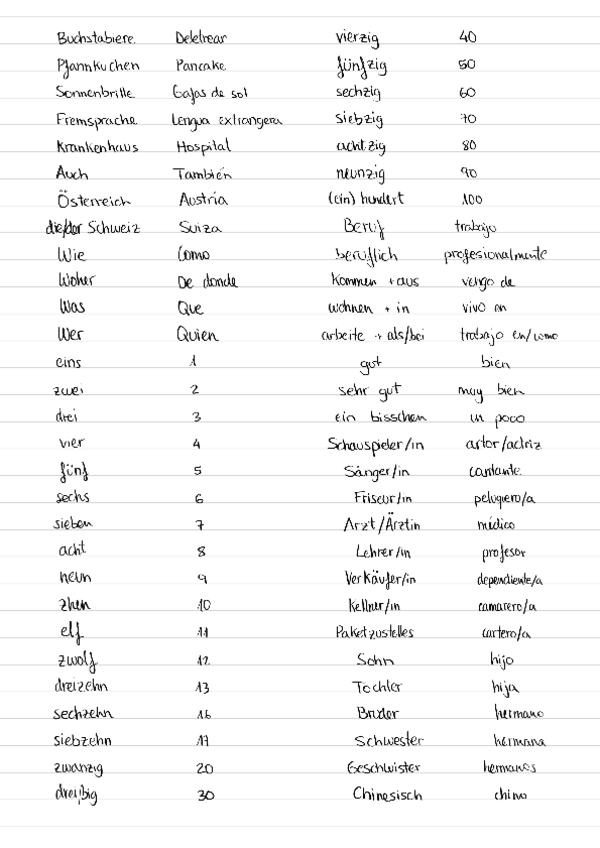 Buchstabiere. Deletrear vierzig 40
Pfannkuchen Pancake fünfzig 50
Sonnenbrille Gafas de sol sechzig 60
Fremsprache Lengua extrangera siebzig 70
Krankenhaus Hospital achtzig 80
Auch También neunzig 90
Österreich Austria (ein) hundert 100
die/der Schweiz Suiza Beruf trabajo
Wie Como beruflich profesionalmente
Woher De donde kommen + aus vengo de
Was Que wohnen + in vivo en
Wer Quien arbeite + als/bei trabajo en/como
eins 1 gut bien
zwei 2 sehr gut muy bien
drei 3 ein bisschen un poco
vier 4 Schauspieler/in actor/actriz
fünf 5 Sänger/in cantante
sechs 6 Friseur/in peluquero/a
sieben 7 Arzt/Ärztin médico
acht 8 Lehrer/in profesor
neun 9 Verkäufer/in dependiente/a
zhen 10 Kellner/in camarero/a
elf 11 Paketzustelles cartero/a
zwolf 12 Sohn hijo
dreizehn 13 Tochter hija
sechzehn 16 Bruder hermano
siebzehn 17 Schwester hermana
zwanzig 20 Geschwister hermanos
dreißig 30 Chinesisch chino